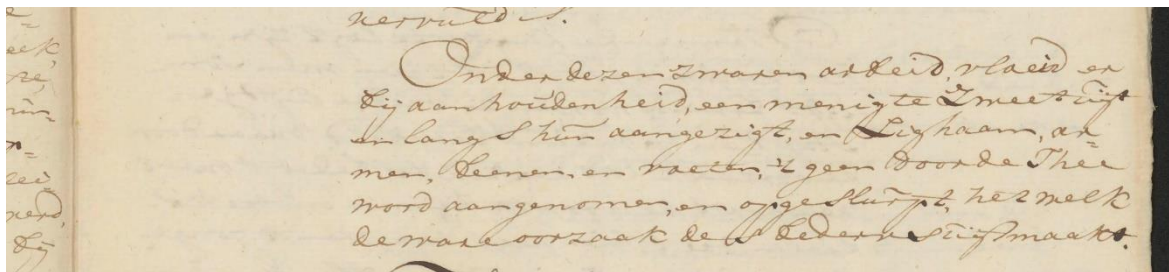 vervuld is.
Onder dezen zwaren arbeid, vloeid er
bij aanhoudenheid, een menigte Zweet uijt
en langs hun aangezigt, en Lighaam, ar=
men, beenen, en voeten, 't geen door de Thee
word aangenomen, en opgeslurpt, het welk
de ware oorzaak des bederfs uijtmaakt.